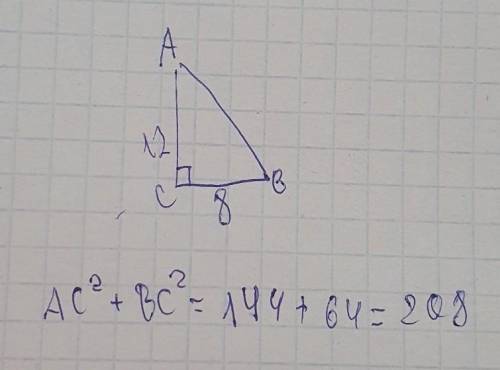 A
12
C
8
B
AC² + BC² = 144 + 64 = 208